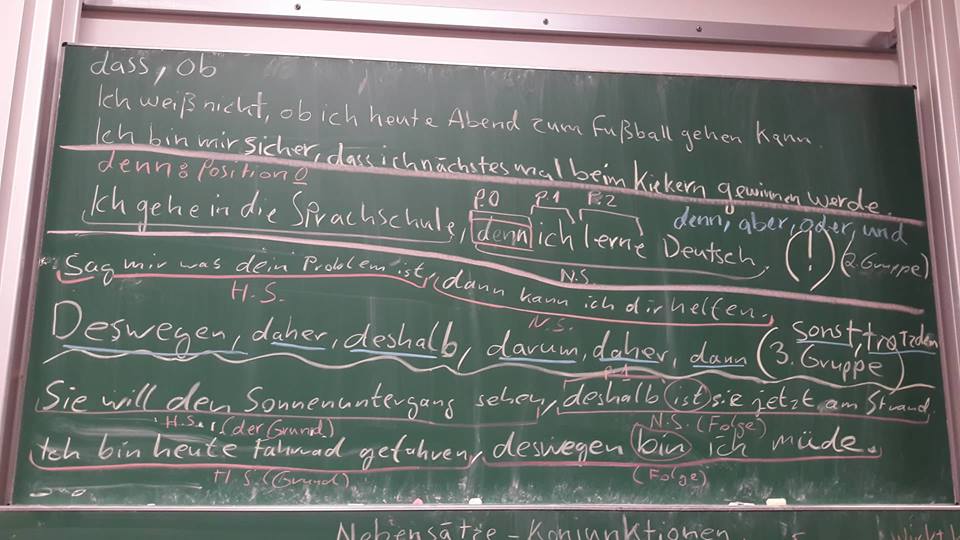 dass, ob
Ich weiß nicht, ob ich heute Abend zum Fußball gehen kann.
Ich bin mir sicher, dass ich nächstes mal beim Kickern gewinnen werde.
denn: Position 0
P.0 P.1 P.2
Ich gehe in die Sprachschule, denn ich lerne Deutsch.
denn, aber, oder, und
(!) (2. Gruppe)
N.S.
Sag mir was dein Problem ist, dann kann ich dir helfen.
H.S.
N.S.
Deswegen, daher, deshalb, darum, daher, dann (sonst, trotzdem
3. Gruppe)
P.1
Sie will den Sonnenuntergang sehen, deshalb ist sie jetzt am Strand.
H.S. (der Grund) N.S. (Folge)
Ich bin heute Fahrrad gefahren, deswegen bin ich müde.
H.S. (Grund) (Folge)
Nebensätze - Konjunktionen